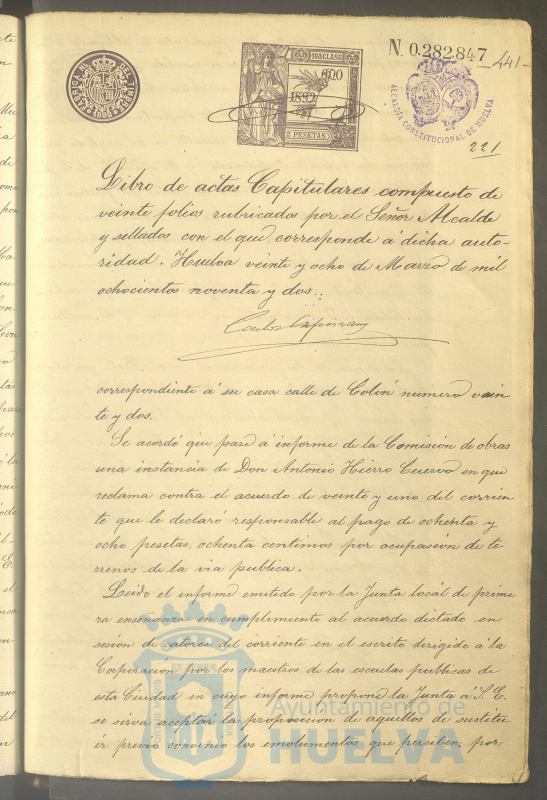 FABRICA NAL DEL TIMBRE
1892
10ª CLASE
600
1892
2 PESETAS
N. 0.282.847
441
ALCALDÍA CONSTITUCIONAL DE HUELVA
221
Libro de actas Capitulares compuesto de
veinte folios rubricados por el Señor Alcalde
y sellados con el que corresponde á dicha auto-
ridad. Huelva veinte y ocho de Marzo de mil
ochocientos noventa y dos.
correspondiente á su casa calle de Colón numero vein
te y dos.
Se acordó que pase á informe de la Comisión de obras
una instancia de Don Antonio Hierro Cuervo en que
reclama contra el acuerdo de veinte y uno del corrien
te que le declaró responsable al pago de ochenta y
ocho pesetas, ochenta centimos por ocupasión de te
rrenos de la via publica.
Leido el informe emitido por la Junta local de prime
ra enseñanza en cumplimiento al acuerdo dictado en
sesion de catorce del corriente en el escrito dirigido á la
Corporacion por los maestros de las escuelas publicas de
esta Ciudad en cuyo informe propone la Junta á S. E.
se sirva aceptar la proposicion de aquellos de sustitu
ir previo convinio los emolumentos que perciben, por
Ayuntamiento de
HUELVA